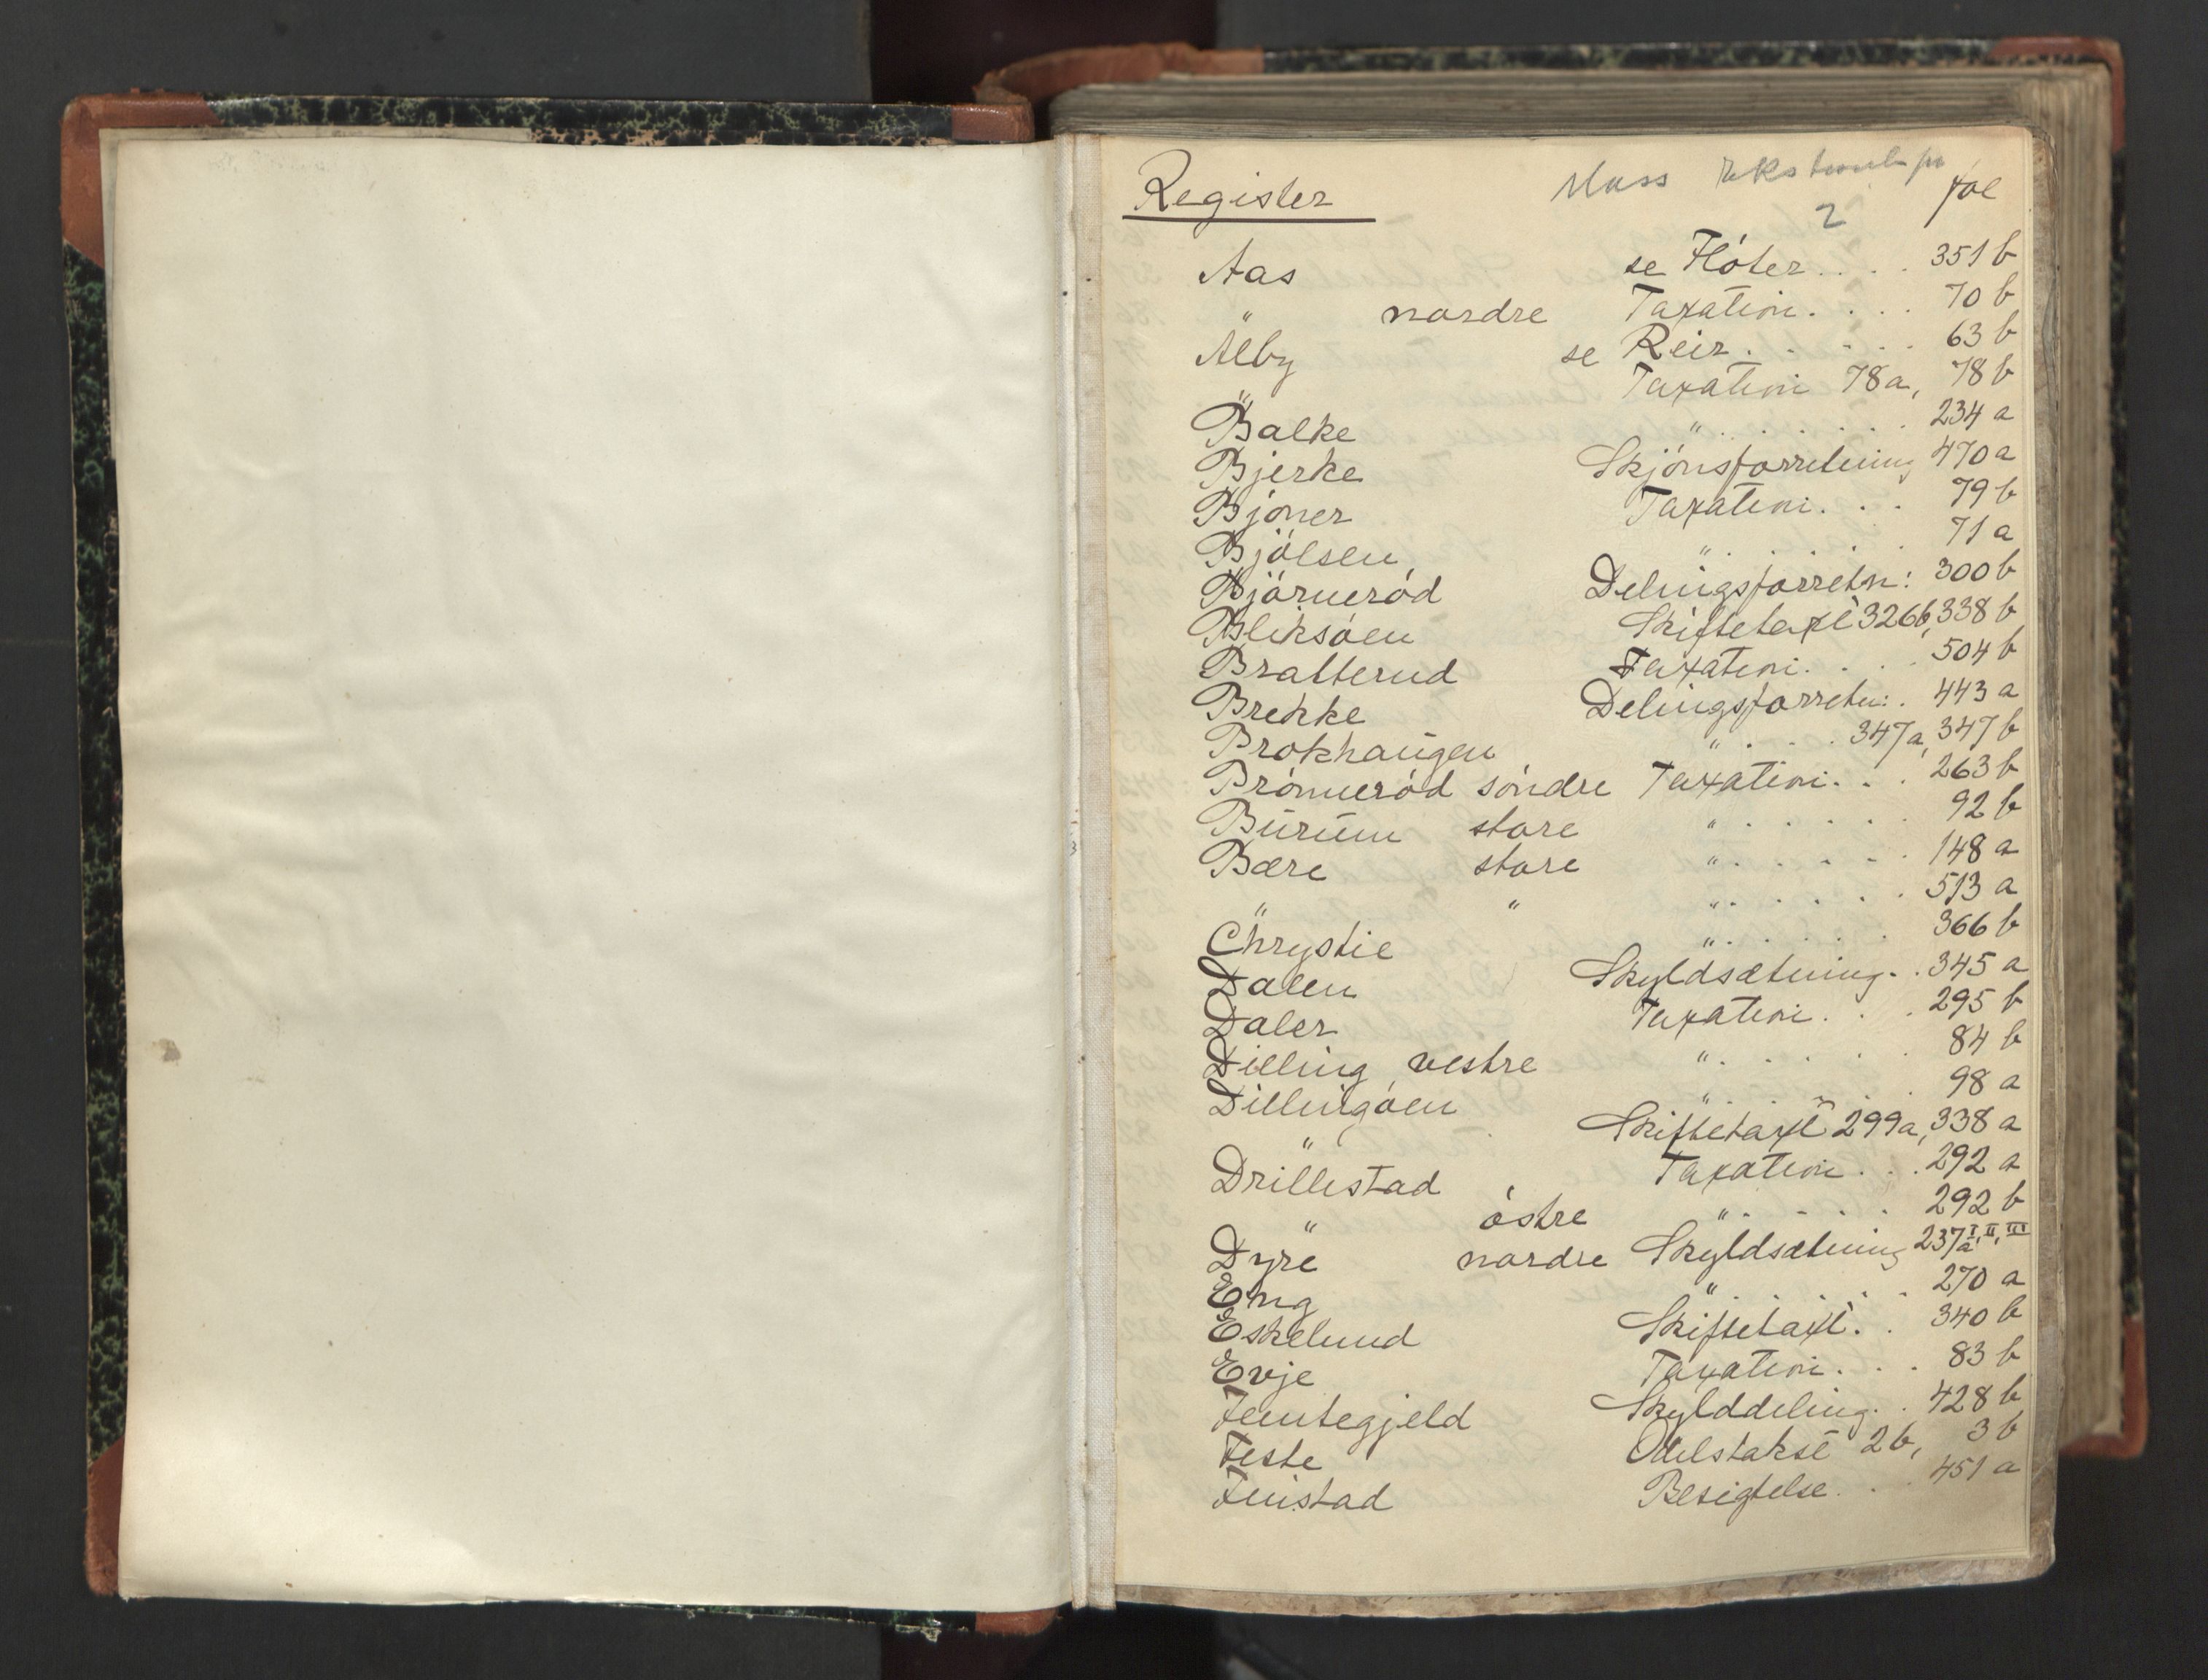 Moss
Register 2 fol
Aas se Flóter.... 351 b
" nordre Taxation.... 70 b
Alby se Reir..... 63 b
" Taxation 78a, 78 b
Balke "...... 234 a
Bjerke Skjónsforretning 470 a
Bjóner Taxation... 79 b
Bjólsen "..... 71 a
Bjórneród Delingsforretn: 300 b
Bliksóen Skiftetaxt 326b, 338 b
Bratterud Taxation... 504 b
Brekke Delingsforretn:. 443 a
Brokhaugen ".... 347 a, 347 b
Brónneród sóndre Taxation... 263 b
Burum store "...... 92 b
Bære store "...... 148 a
" " "..... 513 a
Chrystie "..... 366 b
Dalen Skyldsætning.. 345 a
Daler Taxation... 295 b
Dilling, vestre "..... 84 b
Dillingóen "..... 98 a
" Skiftetaxt 299a, 338 a
Drillestad Taxation... 292 a
" óstre "..... 292 b
Dyre nordre Skyldsætning 237a I, II, III
Eng "..... 270 a
Eskelund Skiftetaxt.. 340 b
Evje Taxation... 83 b
Femtegjeld Skylddeling.. 428 b
Feste Odelstakst 2b, 3 b
Finstad Besigtelse... 451 a